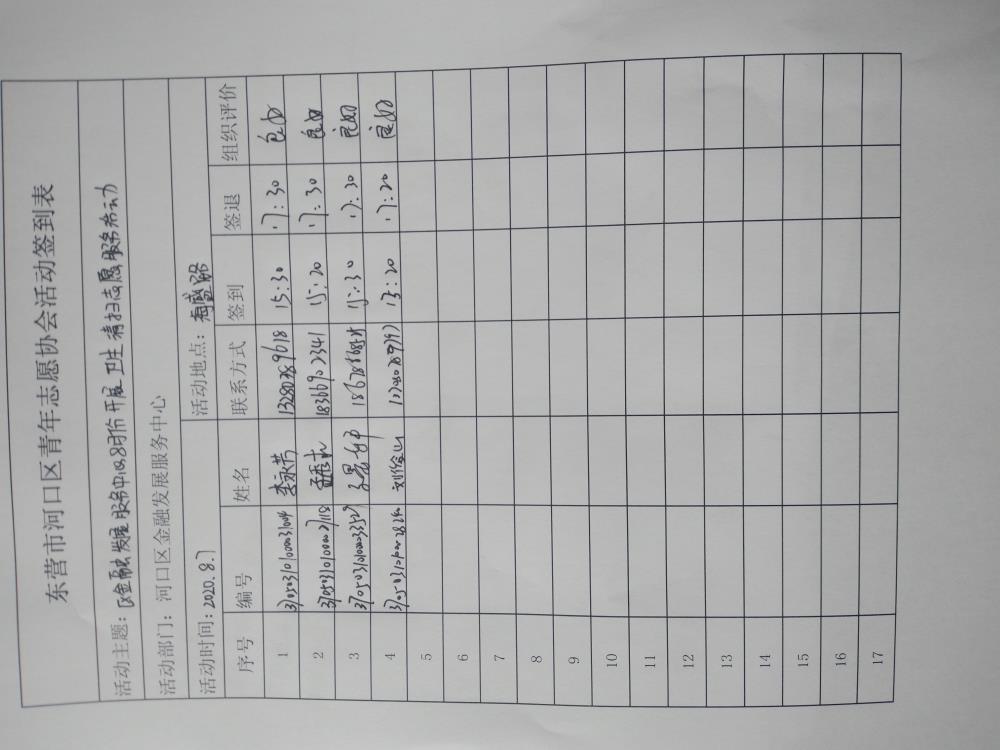 东营市河口区青年志愿协会活动签到表
活动主题：区金融发展服务中心8月份开展卫生清扫志愿服务活动
活动部门：河口区金融发展服务中心
活动时间：2020.8.7 活动地点：海盛路
序号 编号 姓名 联系方式 签到 签退 组织评价
1 李永芳 13280389618 15:30 17:30 良好
2 18366902341 15:20 17:30 良好
3 15:30 17:20 良好
4 13:20 17:20 良好
5
6
7
8
9
10
11
12
13
14
15
16
17